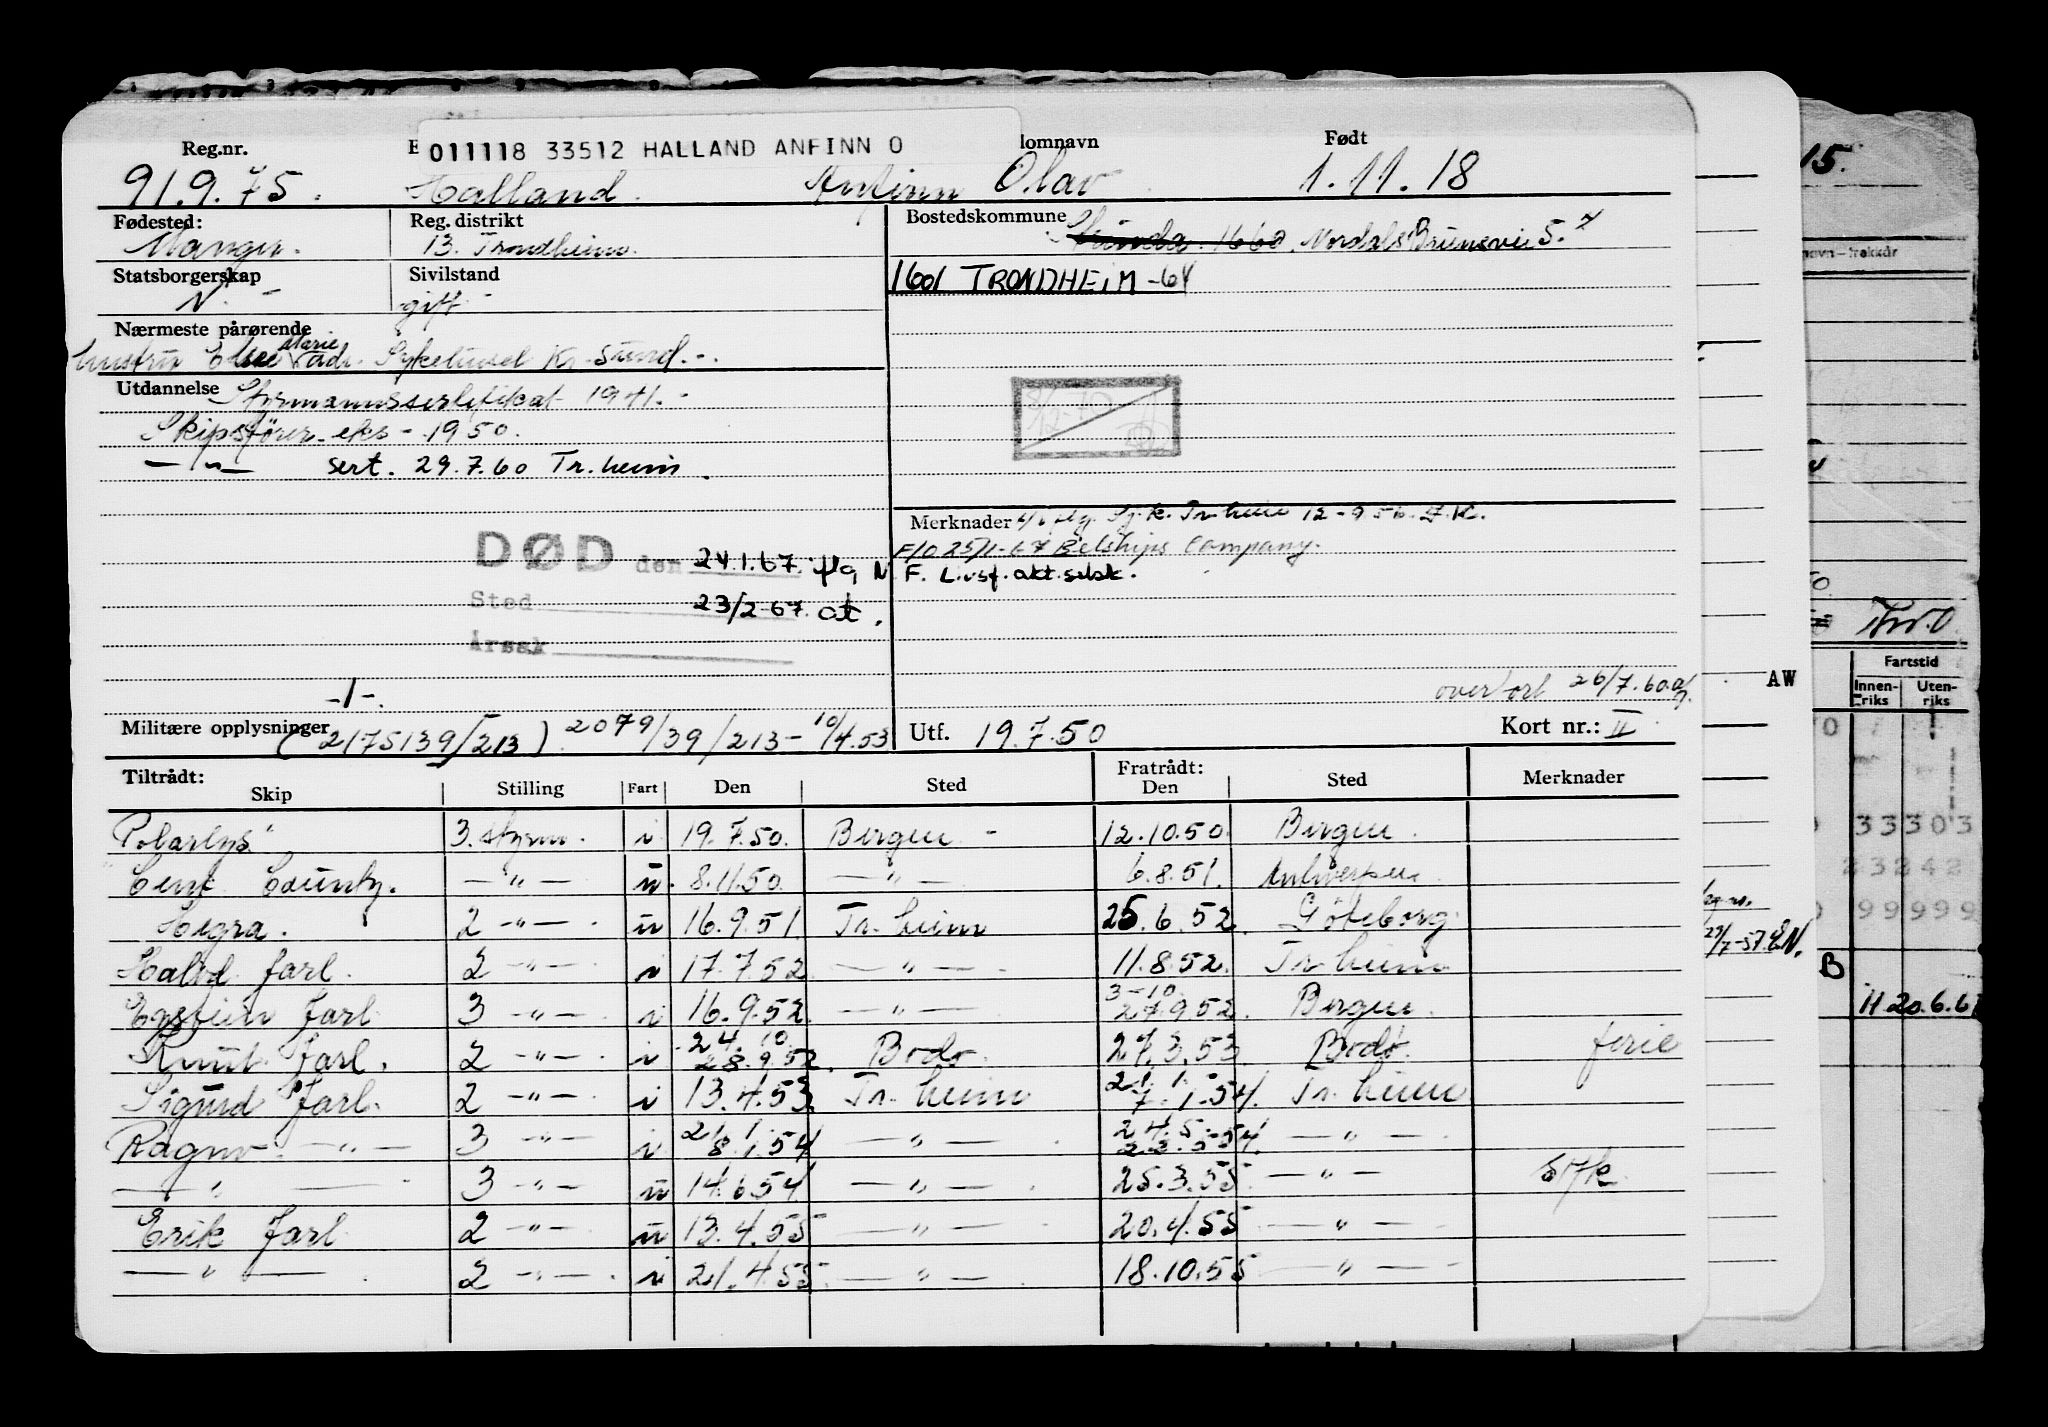 Reg.nr. 011118 33512 HALLAND ANFINN O lomnavn Født
91.9.75. Halland. Anfinn Olav 1.11.18
Fødested: Reg. distrikt Bostedskommune
Manger. 13. Trondheim. Strinda 1660. Nordals Brunsvei 5.
Statsborgerskap Sivilstand 1601 TRONDHEIM -64
N. - gift -
Nærmeste pårørende
hustru Else Marie adr. Sykehuset Kr. sund.-
Utdannelse Styrmannssertifikat 1941.-
Skipsfører-eks - 1950.
— " — sert. 29.7.60 Tr.heim.
Merknader flg. Sj.k. Tr.heim 12-9.56.
F/O 25/1-67 Belships Company.
DØD den 24.1.67. flg N.F. Livsf. akt.selsk.
Sted 23/2-67.
Årsak
-1-. overført 26/7.60.
Militære opplysninger (2175139/213) 2079/39/213- 10/4.53 Utf. 19.7.50 Kort nr.: II
Tiltrådt: Fratrådt:
Skip Stilling Fart Den Sted Den Sted Merknader
Polarlys 3. styrm. i 19.7.50. Bergen - 12.10.50. Bergen.
County. — " — u. 8.11.50. — " — 6.8.51. Antwerpen
Hegra. 2 — " — u 16.9.51. Tr.heim 25.6.52. Göteborg.
Jarl. 2 — " — i 17.7.52. — " — 11.8.52. Tr.heim
Eystein Jarl 3 — " — i 16.9.52. — " — 3-10 27.9.52. Bergen.
Knut Jarl. 2 — " — i 24. 10 28.9.52. Bodø. 27.3.53 Bodø. ferie
Sigurd Jarl. 2 — " — i 13.4.53. Tr.heim 21. 1. 7.1.54. Tr.heim
Ragnv. — " — 3 — " — i 21. 1. 8.1.54 — " — 24.5. 54. — " —
— " — 3 — " — u 14.6.54 — " — 25.3.55 — " — syk.
Erik Jarl 2 — " — u 13.4.55 — " — 20.4.55 — " —
— " — 2 — " — i 21.4.55. — " — 18.10.55 — " —
15.
AW
Fartstid
Innenriks Utenriks
33303
99999
B
11 20.6.6